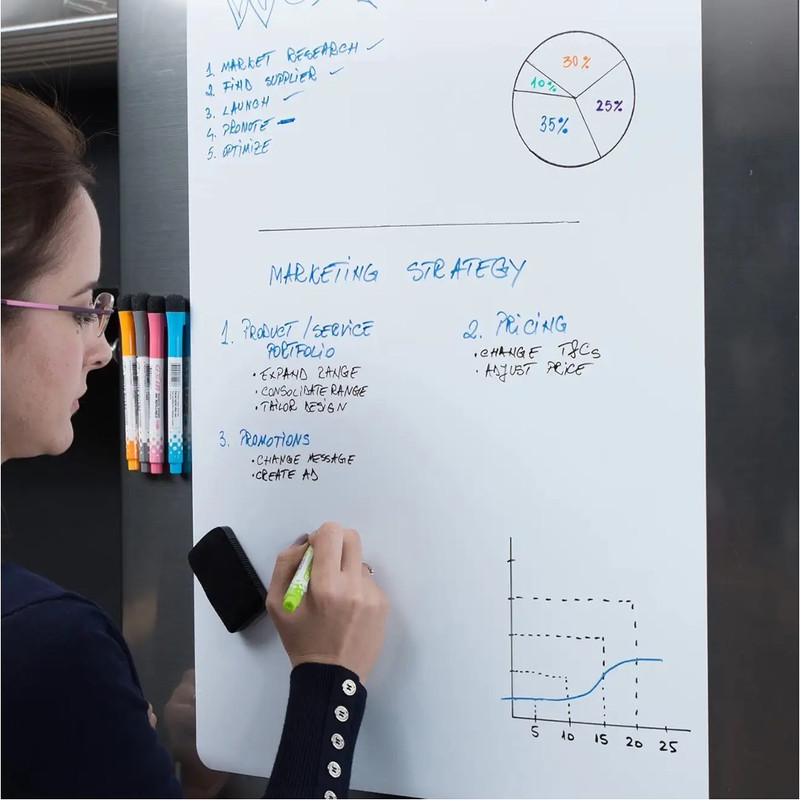 1. MARKET RESEARCH ✓
2. FIND SUPPLIER ✓
3. LAUNCH ✓
4. PROMOTE –
5. OPTIMIZE
30%
10%
25%
35%
MARKETING STRATEGY
1. PRODUCT / SERVICE
PORTFOLIO
• EXPAND RANGE
• CONSOLIDATE RANGE
• TAILOR DESIGN
2. PRICING
• CHANGE T&Cs
• ADJUST PRICE
3. PROMOTIONS
• CHANGE MESSAGE
• CREATE AD
5 10 15 20 25